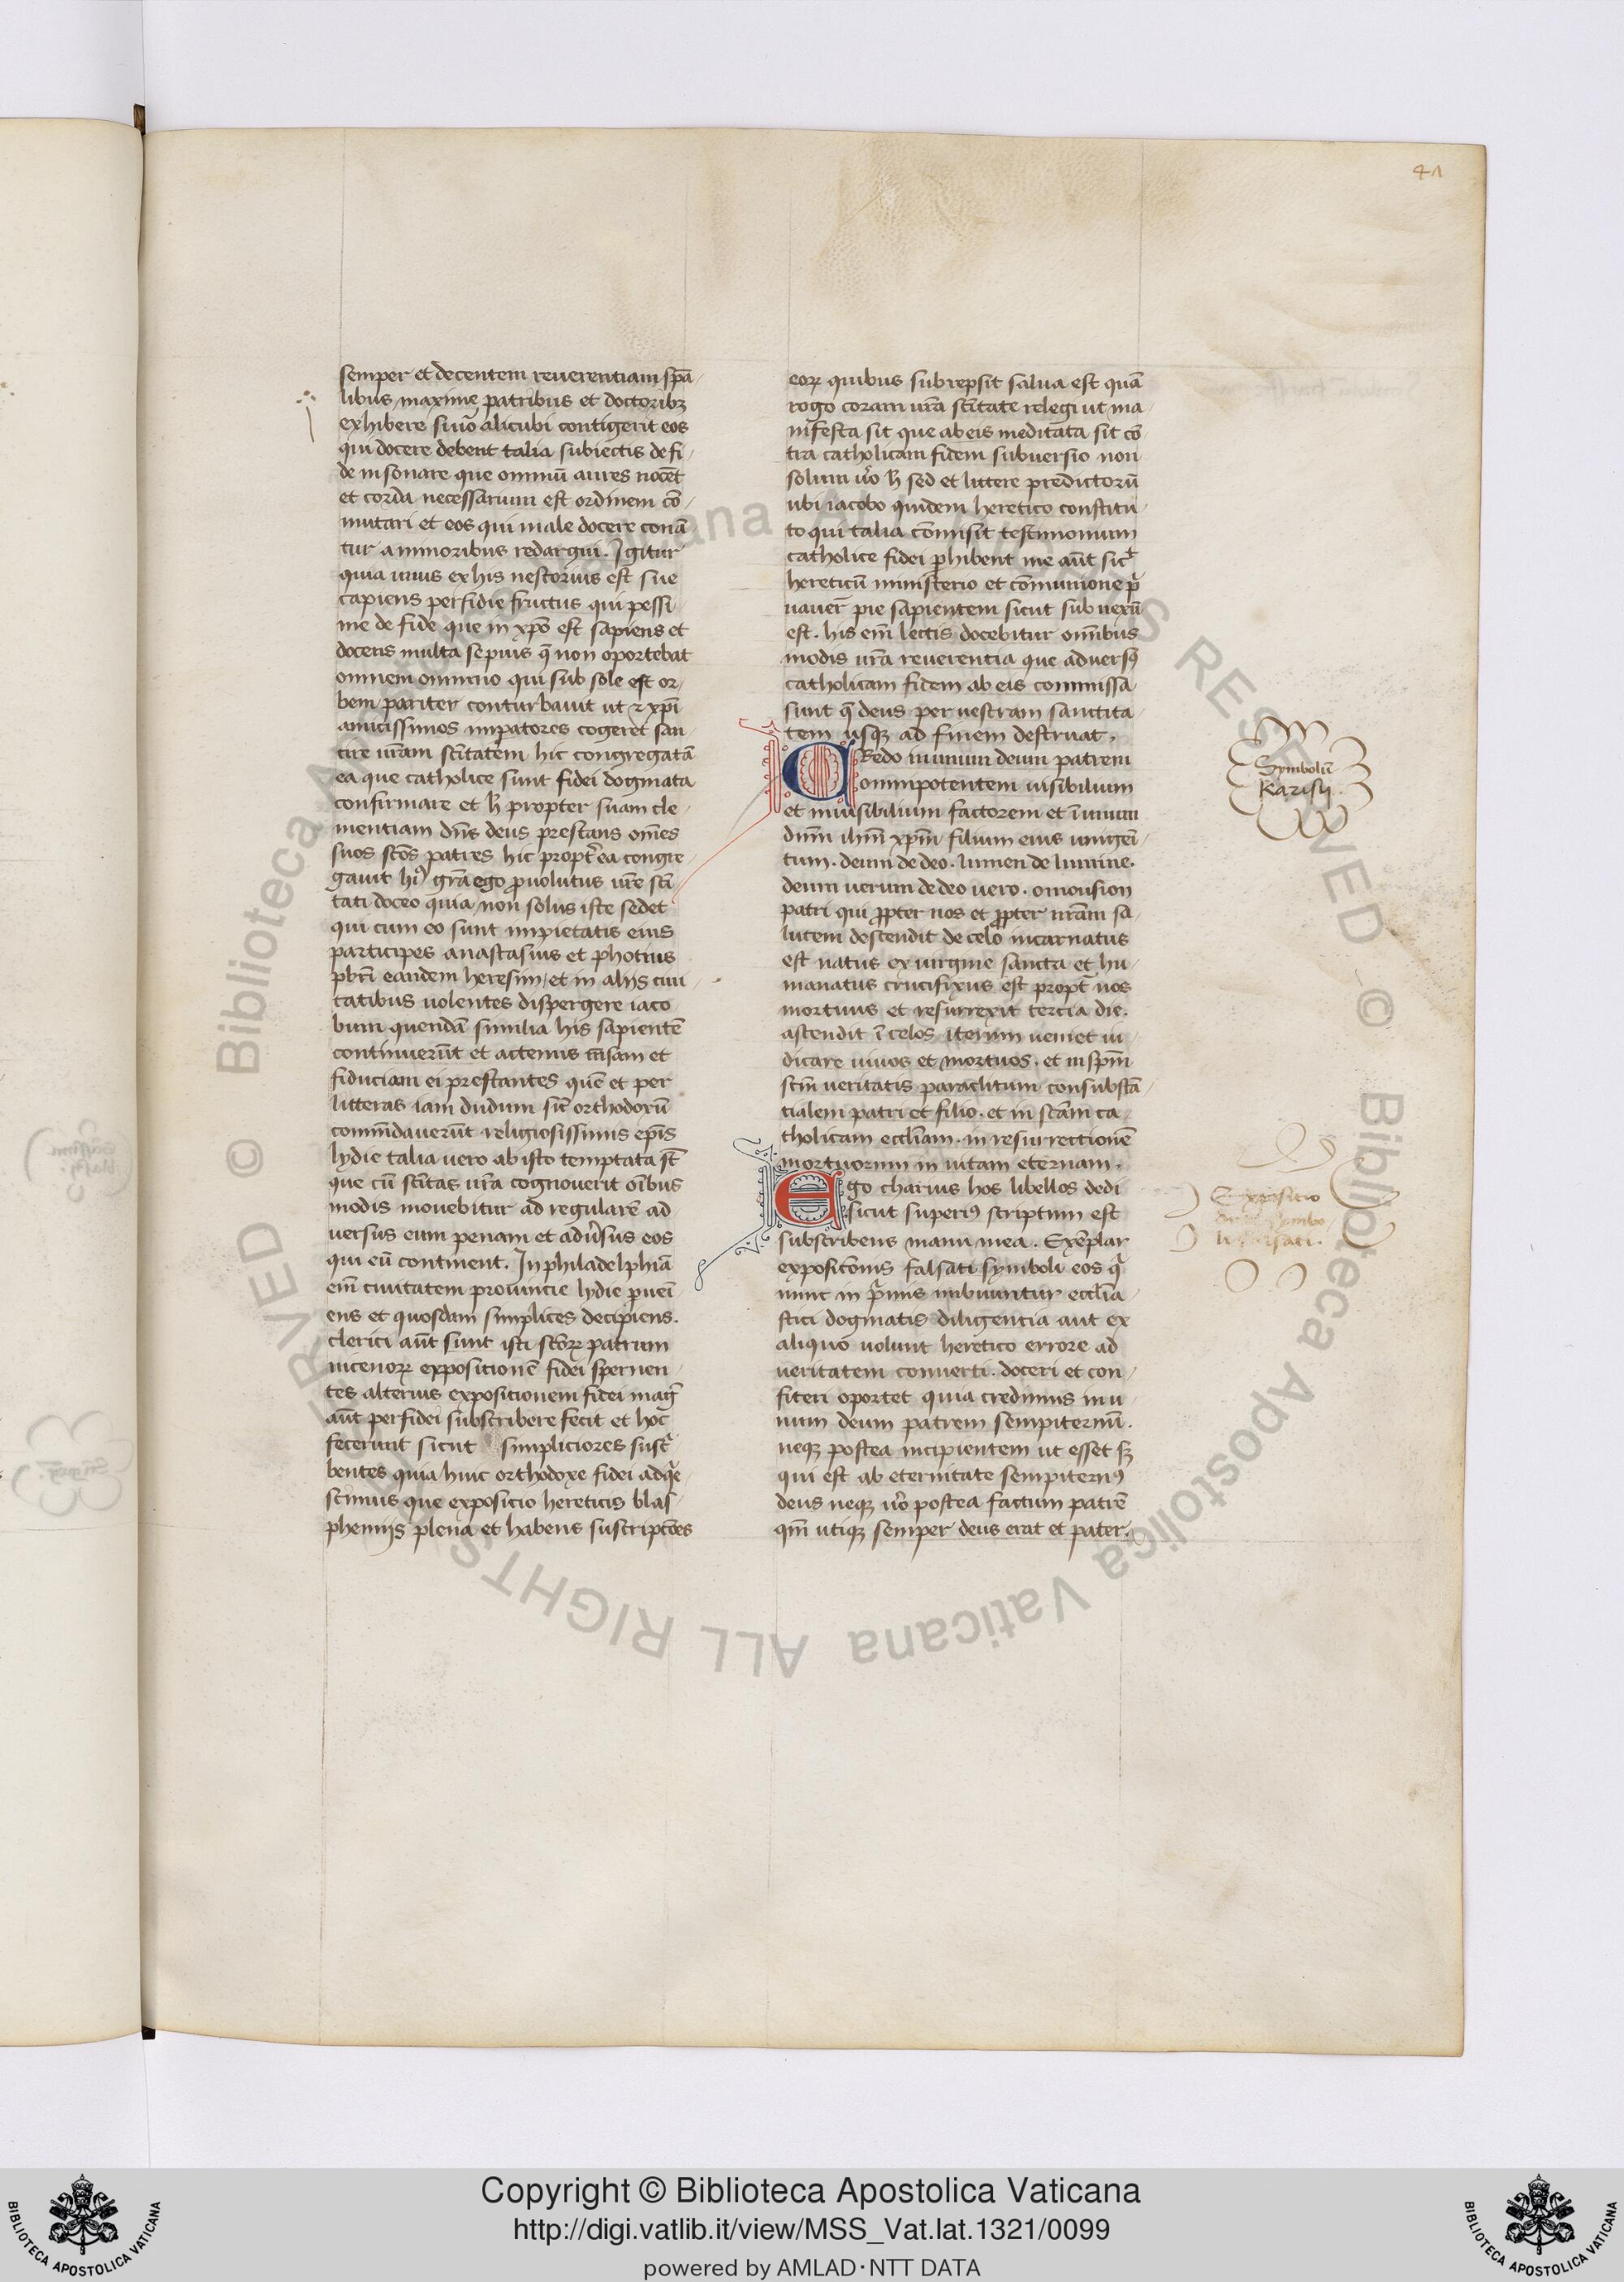 41
semper et decentem reuerentiam spā
libus maxime patribus et doctoribꝫ
exhibere siuō alicubi contigerit eos
qui docere debent talia subiectis de fi
de insonare que omniū aures nocēt
et corda necessarium est ordinem cō
mutari et eos qui male docere conā
tur a minoribus redargui. Igitur
quia unus ex his nestorius est sue
capiens perfidie fructus qui pessi
me de fide que in xpō est sapiens et
docens multa sepius q̄ non oportebat
omnem omnino qui sub sole est or
bem pariter conturbauit ut ⁊ xpī
amicissimos impatores cogeret san
cire urām scītatem hic congregatā
ea que catholice sunt fidei dogmata
confirmare et h̄ propter suam cle
mentiam dn̄s deus prestans om̄es
suos scōs patres hic propt̄ea congre
gauit hiꝰ grā ego ꝓuolutus ur̄e scī
tati doceo quia non solus iste sedet
qui cum eo sunt impietatis eius
participes anastasius et photius
pbrī eandem heresim et in alijs ciui
tatibus uolentes dispergere iaco
bum quendā similia his sapientē
continuerūt et actenus
fiduciam ei prestantes quē et per
litteras iam dudum sic̄ orthodoxū
comm̄dauerūt religiosissimis epīs
lydie talia uero ab isto temptata sūt
que cū scītas ur̄a cognouerit oībus
modis mouebitur ad regularē ad
uersus eum penam et adūsus eos
qui eū continent. In philadelphiā
em̄ ciuitatem prouincie lydie ꝑueī
ens et quosdam simplices decipiens.
clerici aūt sunt isti scōꝝ patrum
nicenoꝝ expositionē fidei spernen
tes alterius expositionem fidei maḡ
aūt perfidei subscribere fecit et hoc
fecerunt sicut simpliciores suscͥ
bentes quia huic orthodoxe fidei adq̄e
scimus que exposicio hereticis blas
phemijs plena et habens suscriptōes
eoꝝ quibus subrepsit salua est quā
rogo coram ur̄a scītate relegi ut ma
nifesta sit que ab eis meditata sit cō
tra catholicam fidem subuersio non
solum uͦo h̄ sed et littere predictorū
ubi iacobo quidem heretico constitu
to qui talia cōmisit testimonium
catholice fidei ꝑhibent me aūt sicͭ
hereticū ministerio et cōmunione pͥ
uauer̄ pie sapientem sicut subnexū
est. his em̄ lectis docebitur omībus
modis ur̄a reuerentia que aduersꝰ
catholicam fidem ab eis commissa
sunt q̄ deus per uestram sanctita
tem usqꝫ ad finem destruat.
CRedo in unum deum patrem
omnipotentem uisibilium
et inuisibilium factorem et ī unum
dnm̄ ihm̄ xpm̄ filium eius unigeī
tum. deum de deo. lumen de lumine.
deum uerum de deo uero. omousion
patri qui ꝓpter nos et ꝓpter nrām sa
lutem descendit de celo incarnatus
est natus ex uirgine sancta et hu
manatus crucifixus est propt̄ nos
mortuus et resurrexit tercia die.
ascendit ī celos iterum ueniet iu
dicare uiuos et mortuos. et in spm̄
scm̄ ueritatis paraclitum consubstā
tialem patri et filio. et in scām ca
tholicam ecclīam. in resurrectionē
mortuorum in uitam eternam.
Ego charius hos libellos dedi
sicut superiꝰ scriptum est
subscribens manu mea. Exēplar
expositōnis falsati symboli eos qͥ
nunc in pͥmis imbuuntur ecclīa
stici dogmatis diligentia aut ex
aliquo uolunt heretico errore ad
ueritatem conuerti. doceri et con
fiteri oportet quia credimus in u
num deum patrem sempiternū.
neqꝫ postea incipientem ut esset sꝫ
qui est ab eternitate sempiternꝰ
deus neqꝫ uͦo postea factum patrē
qm̄ utiqꝫ semper deus erat et pater.
Symbolū
Karisij
Expositio
Copyright © Biblioteca Apostolica Vaticana
http://digi.vatlib.it/view/MSS_Vat.lat.1321/0099
powered by AMLAD·NTT DATA
BIBLIOTECA APOSTOLICA VATICANA
BIBLIOTECA APOSTOLICA VATICANA